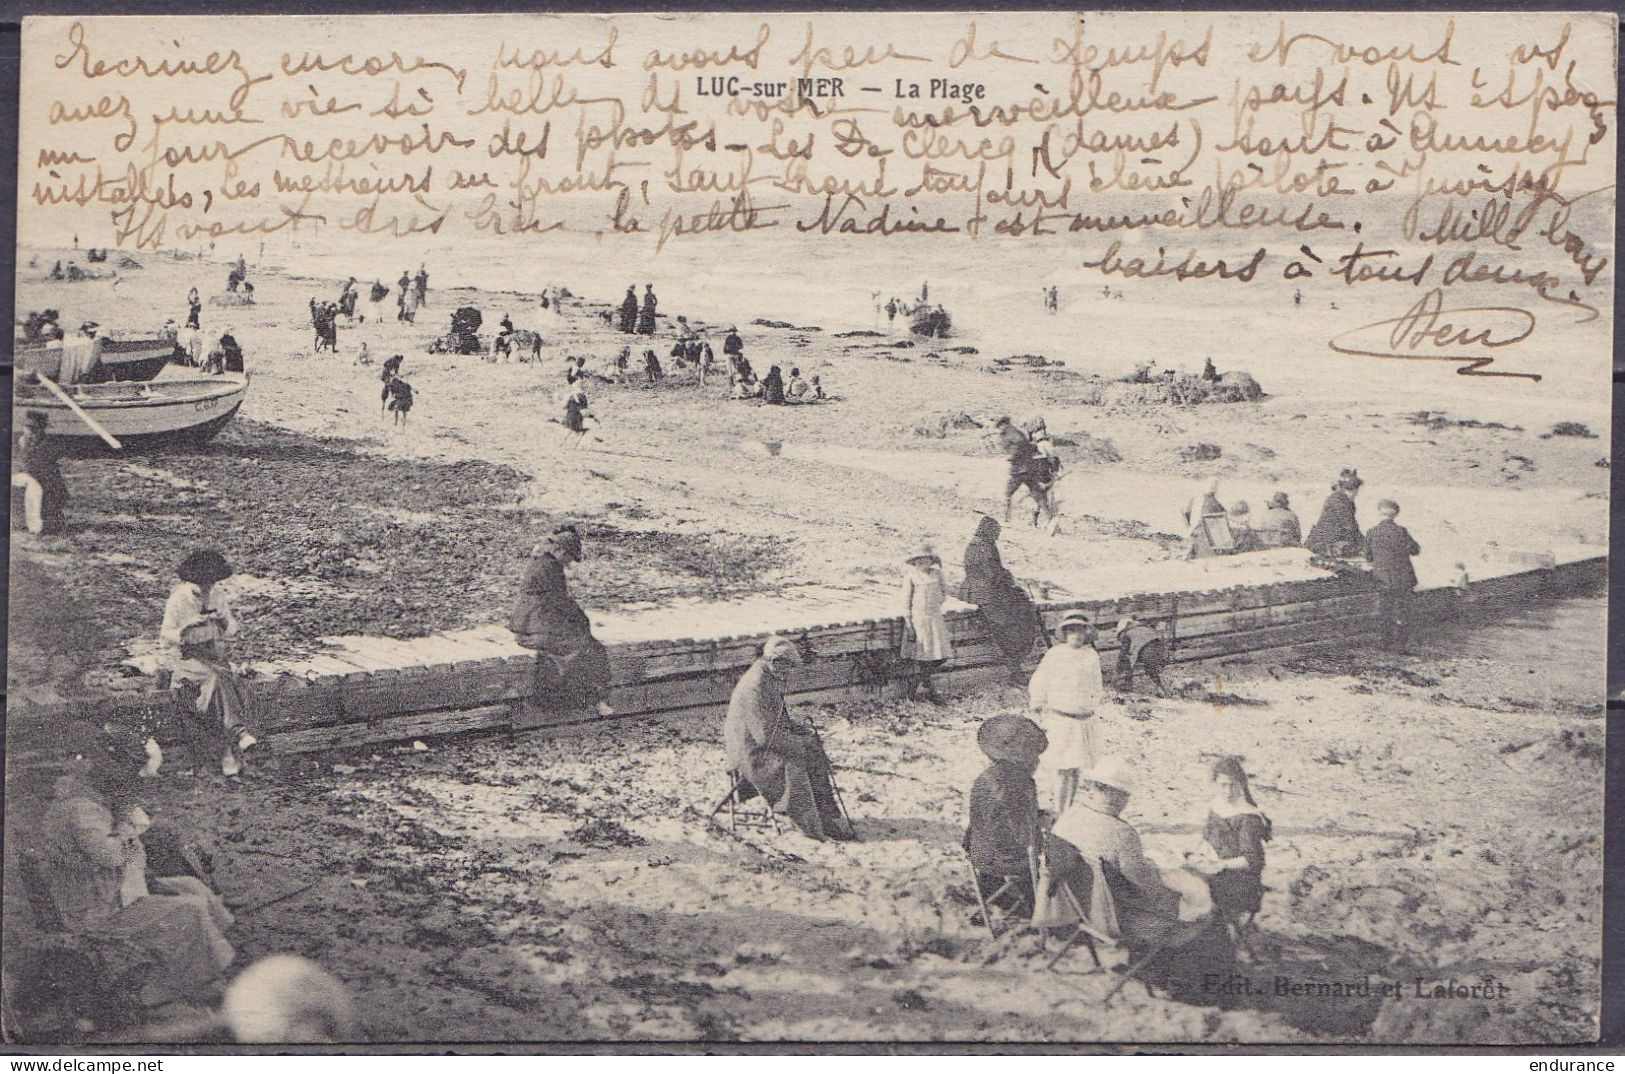 Ecrivez encore, nous avons peu de temps et vous, vs,
LUC-sur MER — La Plage
avez une vie si belle ds votre merveilleux pays. Ns espérons
un jour recevoir des photos – Les De Clercq (dames) sont à Annecy
installées, les messieurs au front, sauf toujours élève pilote à Juvisy
Ils vont très bien, la petite Nadine est merveilleuse. Mille bons
baisers à tous deux.
C.
Edit. Bernard et Laforêt
endurance